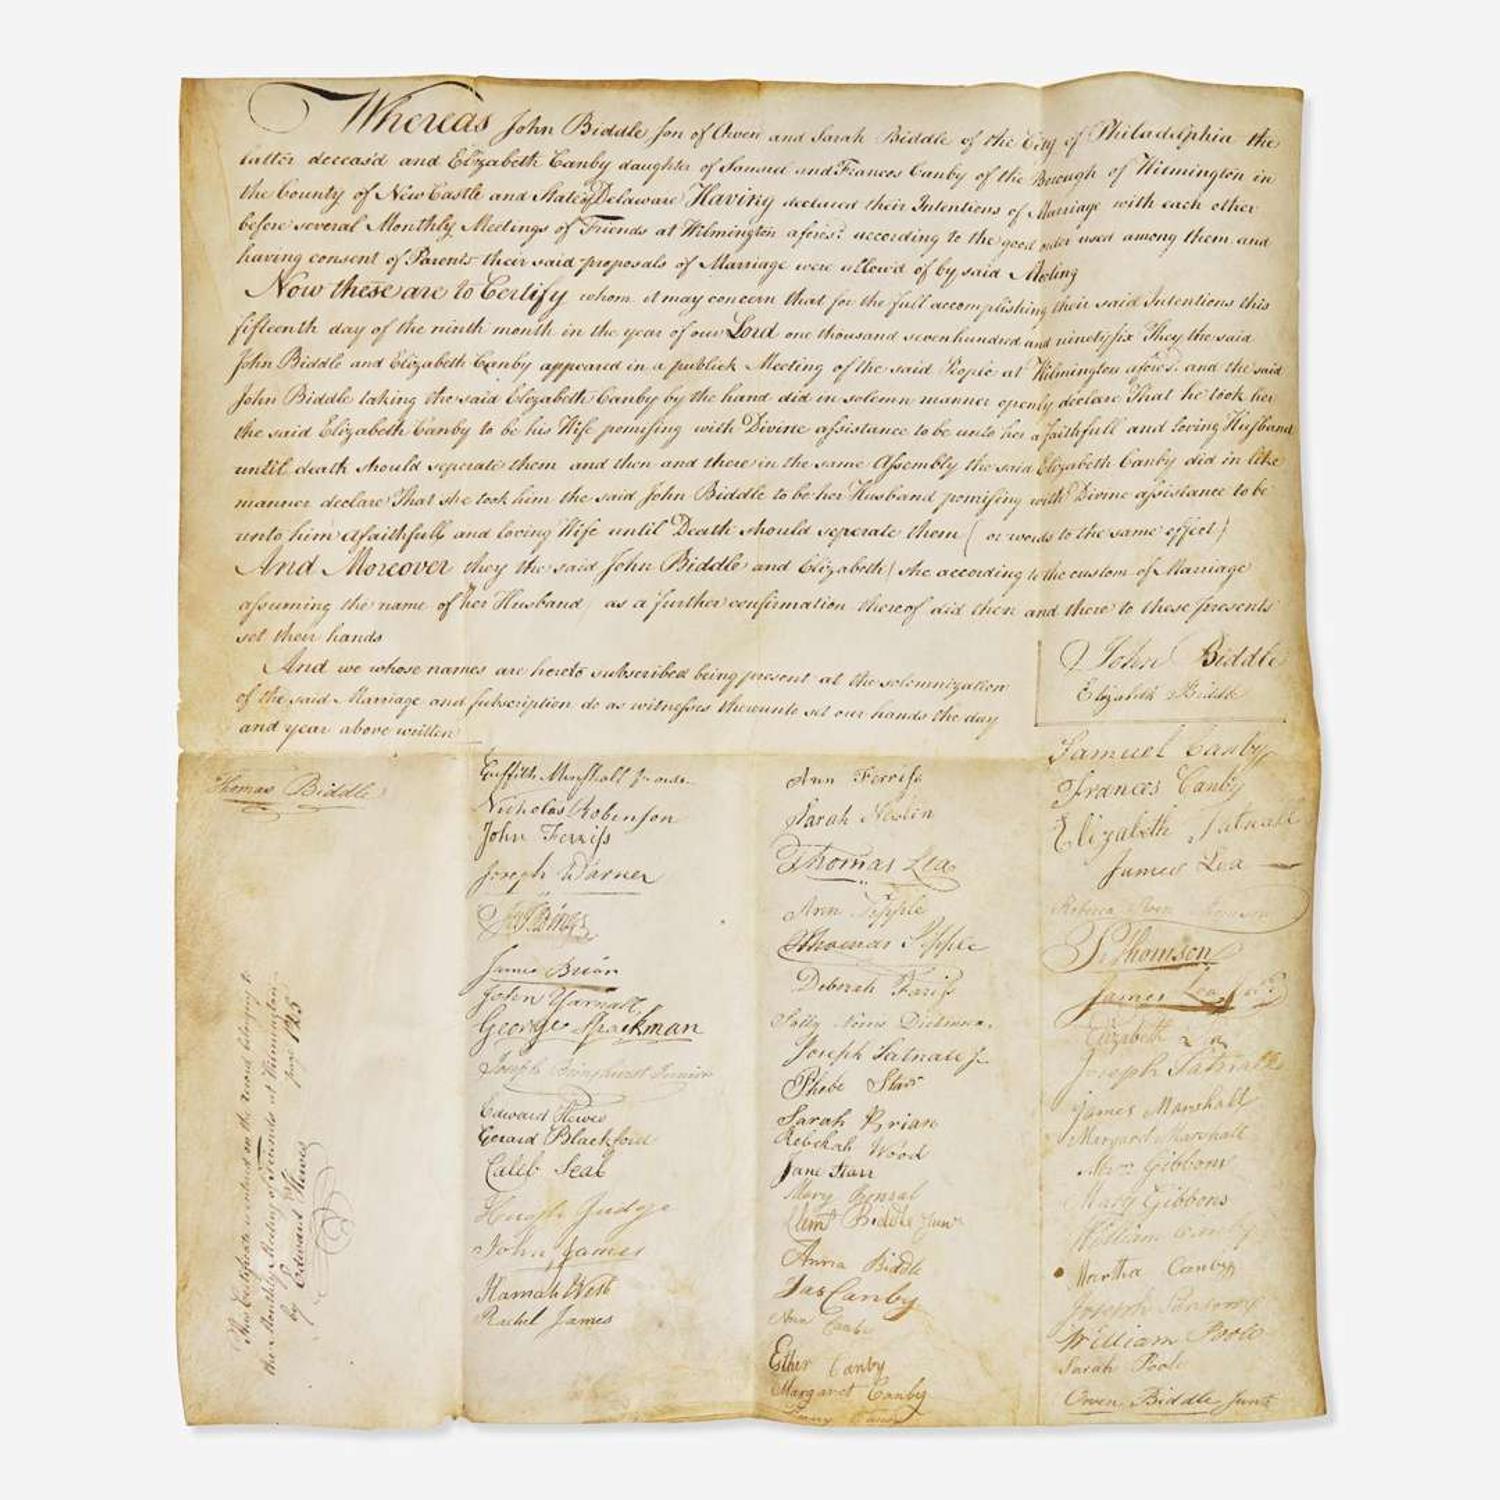 Whereas John Biddle son of Owen and Sarah Biddle of the City of Philadelphia the
latter deceas'd and Elizabeth Canby daughter of Samuel and Frances Canby of the Borough of Wilmington in
the County of New Castle and State of Delaware Having declared their Intentions of Marriage with each other
before several Monthly Meetings of Friends at Wilmington afores.d according to the good order used among them and
having consent of Parents their said proposals of Marriage were allow'd of by said Meeting
Now these are to Certify whom it may concern that for the full accomplishing their said Intentions this
fifteenth day of the ninth month in the year of our Lord one thousand sevenhundred and ninetysix They the said
John Biddle and Elizabeth Canby appeared in a publick Meeting of the said People at Wilmington afores.d and the said
John Biddle taking the said Elizabeth Canby by the hand did in solemn manner openly declare That he took her
the said Elizabeth Canby to be his Wife promising with Divine assistance to be unto her a faithfull and loving Husband
until death should seperate them and then and there in the same Assembly the said Elizabeth Canby did in like
manner declare That she took him the said John Biddle to be her Husband promising with Divine assistance to be
unto him a faithfull and loving Wife until Death should seperate them ( or words to the same effect )
And Moreover they the said John Biddle and Elizabeth ( she according to the custom of Marriage
assuming the name of her Husband ) as a further confirmation thereof did then and there to these presents
set their hands
John Biddle
Elizabeth Biddle
And we whose names are hereto subscribed being present at the solemnization
of the said Marriage and subscription do as witnesses thereunto set our hands the day
and year above written
Thomas Biddle
This Certificate is entered on the record belonging to
the Monthly Meeting of Friends at Wilmington
page 125
by Edward Hewes
Griffith Minshall
Nicholas Robinson
John Ferriss
Joseph Warner
James Brian
John Yarnall
George Spackman
Joseph Bringhurst Junior
Edward Hewes
Gerard Blackford
Caleb Seal
Hugh Judge
John James
Hannah West
Rachel James
Ann Ferriss
Sarah
Thomas Lea
Ann Sipple
Thomas Sipple
Deborah Fariss
Sally Norris Dickinson
Joseph Tatnall Jr
Phebe Starr
Sarah Brian
Rebekah Wood
Jane Starr
Mary Bonsal
Clemt Biddle Junr
Anna Biddle
Jas Canby
Ann Canby
Esther Canby
Margaret Canby
Canby
Samuel Canby
Frances Canby
Elizabeth Tatnall
James Lea
Rebecca
Thomson
James Lea
Elizabeth Lea
Joseph Tatnall
James Marshall
Margaret Marshall
Gibbons
Mary Gibbons
William Canby
Martha Canby
Joseph
William Poole
Sarah Poole
Owen Biddle Junr